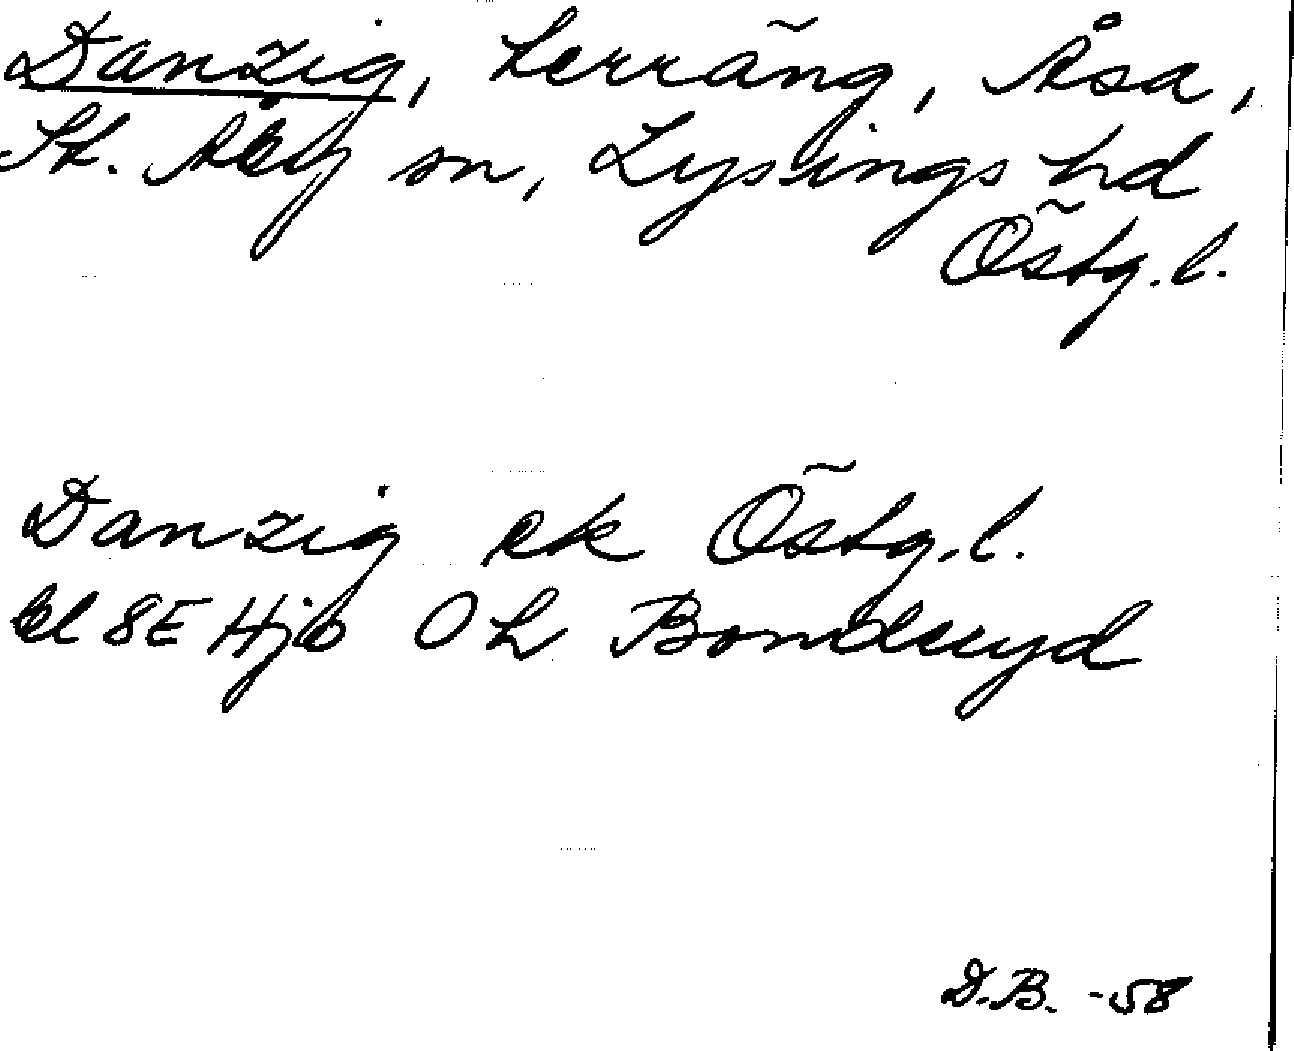 Danzig, herräng, Åsa,
St. Åby sn, Lysings hd
Östg.l.
Danzig ek Östg.l.
bl 8E Hjo 0 h Bonderyd
D.B. -58